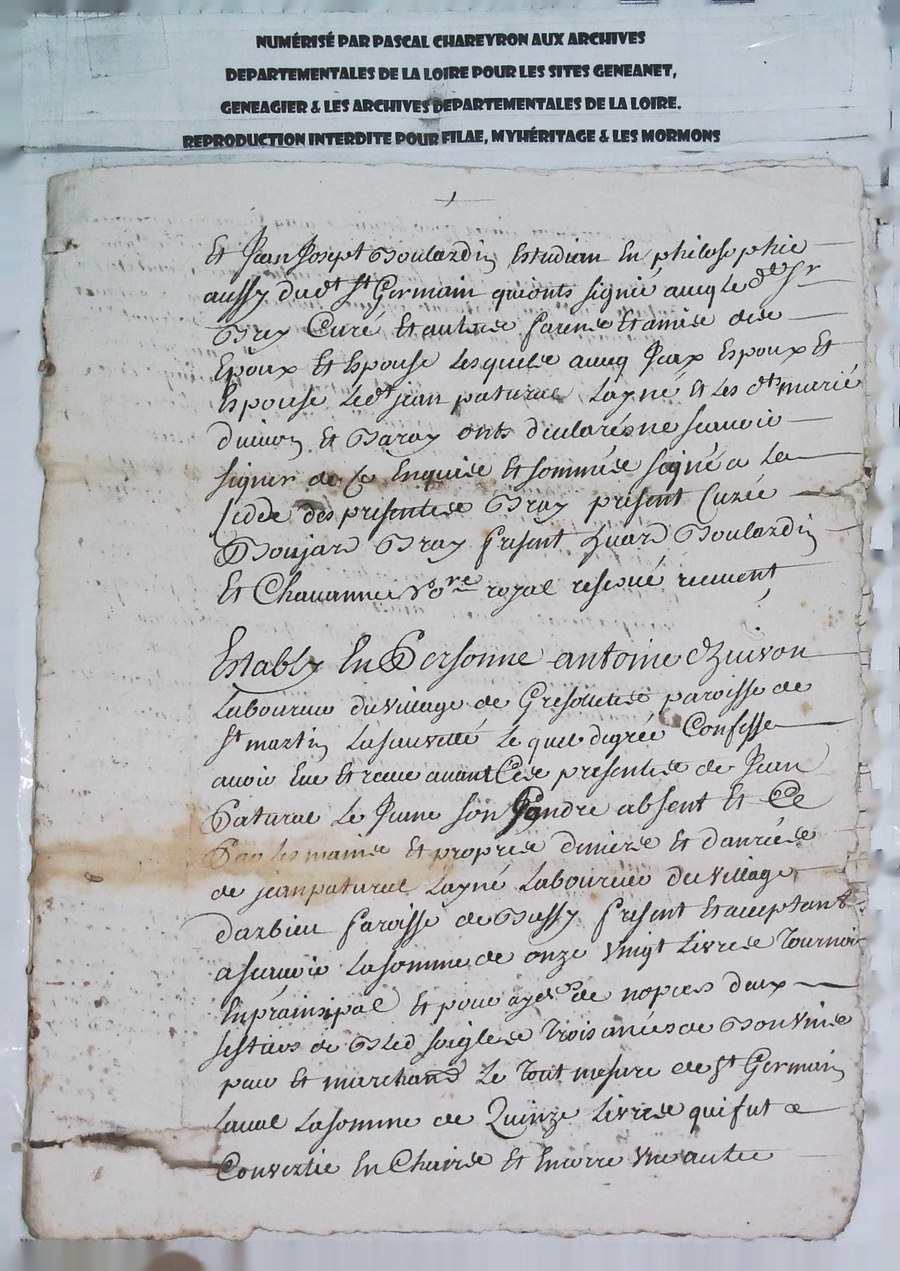 NUMÉRISÉ PAR PASCAL CHAREYRON AUX ARCHIVES
DEPARTEMENTALES DE LA LOIRE POUR LES SITES GENEANET,
GENEAGIER & LES ARCHIVES DEPARTEMENTALES DE LA LOIRE.
REPRODUCTION INTERDITE POUR FILAE, MYHÉRITAGE & LES MORMONS
Et Jean Joseph Boulardin Estudian En philosophie
aussy dudt St Germain quionts signié aueq le dt Sr
Bray Curé Et autres parens Et amis des
Epoux Et Espouse Lesquels aueq Iceux Espoux Et
Espouse Ledt jean patural Layné Et Les dts marié
Et Baray onts declarés ne scauoir
signer de Ce Enquise Et sommés signé a La
Cidde des presentes Bray present Curée
Boujard Bray present huard Boulardin
Et Chauanne royal reserué receuent
EstablY En Personne antoine
Laboureur du village de Gresolettes paroisse de
St martin Lasauveté Le quel degrée Confesse
auoir Eue Et receue auant Ces presentes de Jean
Patural Le Jeune son Gendre absent Et Ce
Par Les mains Et propres deniers Et danrées
de jean patural Layné Laboureur du village
darbieu paroisse de Bussy present Et aceptant
a scauoir La somme de onze vingt Livres Tournois
En prainsipal Et pour de nopces deux
sestiers de Bled seigle Trois anées de Bon vin
pur Et marchand Le Tout mesure de St Germain
Laual La somme de Quinze Livres qui fut
Convertie En Chaire Et Encorre vne autre